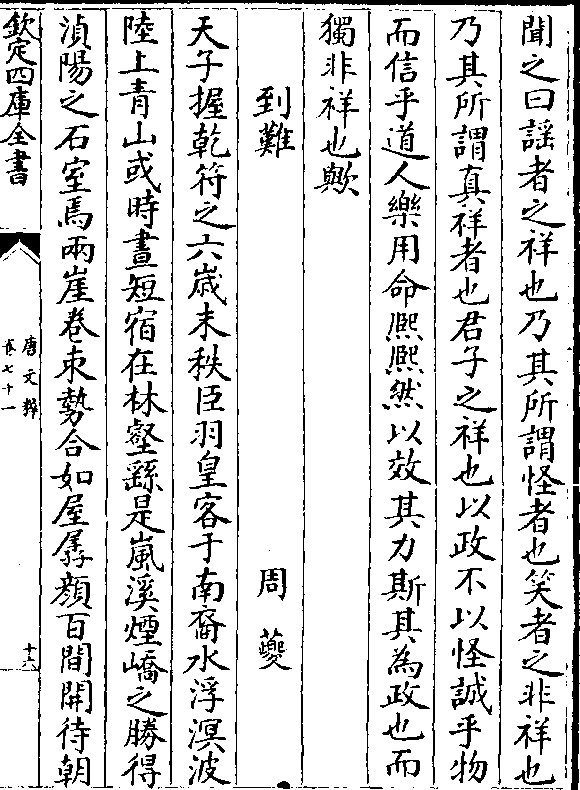 聞之曰謡者之祥也乃其所謂怪者也笑者之非祥也
乃其所謂真祥者也君子之祥也以政不以怪誠乎物
而信乎道人樂用命熙熙然以效其力斯其為政也而
獨非祥也歟
到難　周夔
天子握乾符之六歳末秩臣羽皇客于南裔水浮溟波
陸上青山或時晝短宿在林壑繇是嵐溪煙嶠之勝得
湞陽之石室焉兩崖卷束勢合如屋孱顔百間開待朝
欽定四庫全書
唐文粹
卷七十一
十六